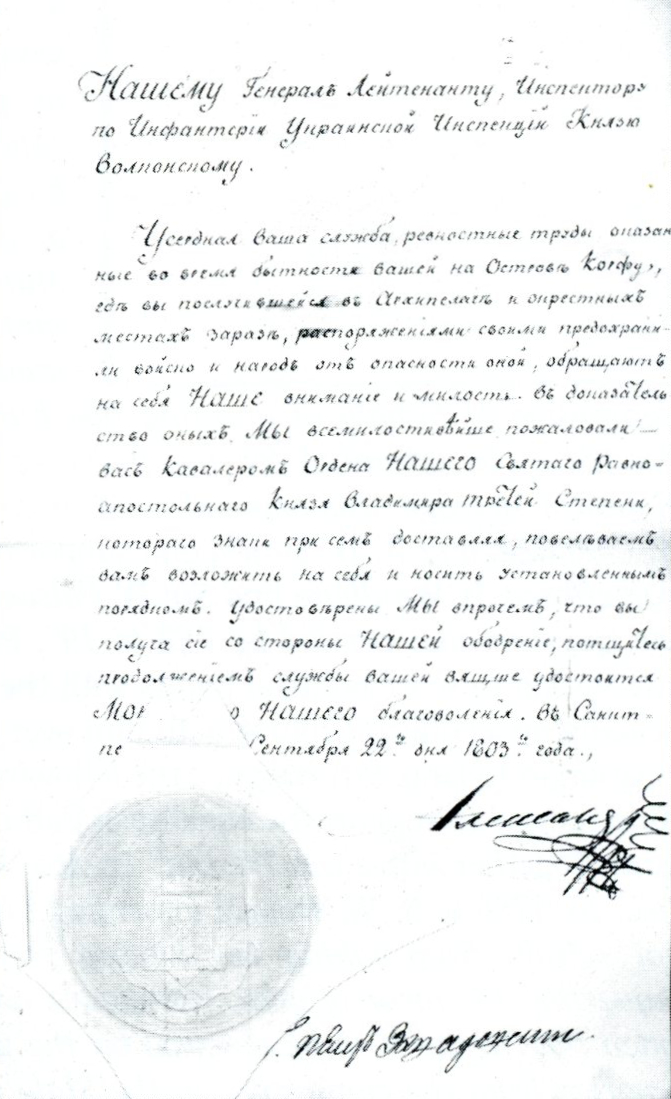 Нашему Генералъ Лейтенанту, Инспектору
по Инфантеріи Украинской Инспекціи Князю
Волконскому.
Усердная ваша служба, ревностные труды оказан
ные во время бытности вашей на Островѣ Корфу,
гдѣ вы послучившейся въ Архипелагѣ и окрестныхъ
местахъ заразѣ, распоряженіями своими предохрани-
ли войско и народъ отъ опасности оной, обращаютъ
на себя Наше вниманіе и милость. Въ доказатель
ство оныхъ Мы всемилостивѣйше пожаловали
васъ Кавалеромъ Ордена Нашего Святаго Равно=
апостольнаго Князя Владимира третей Степени,
котораго знаки при семъ доставляя, повелѣваемъ
вамъ возложить на себя и носить установленнымъ
порядкомъ. Удостовѣрены Мы впрочемъ, что вы
получа сіе со стороны Нашей ободреніе, потщитесь
продолженіемъ службы вашей вящше удостоится
Нашего благоволенія. Въ Санкт=
Сентября 22го дня 1803го года.,
Александр